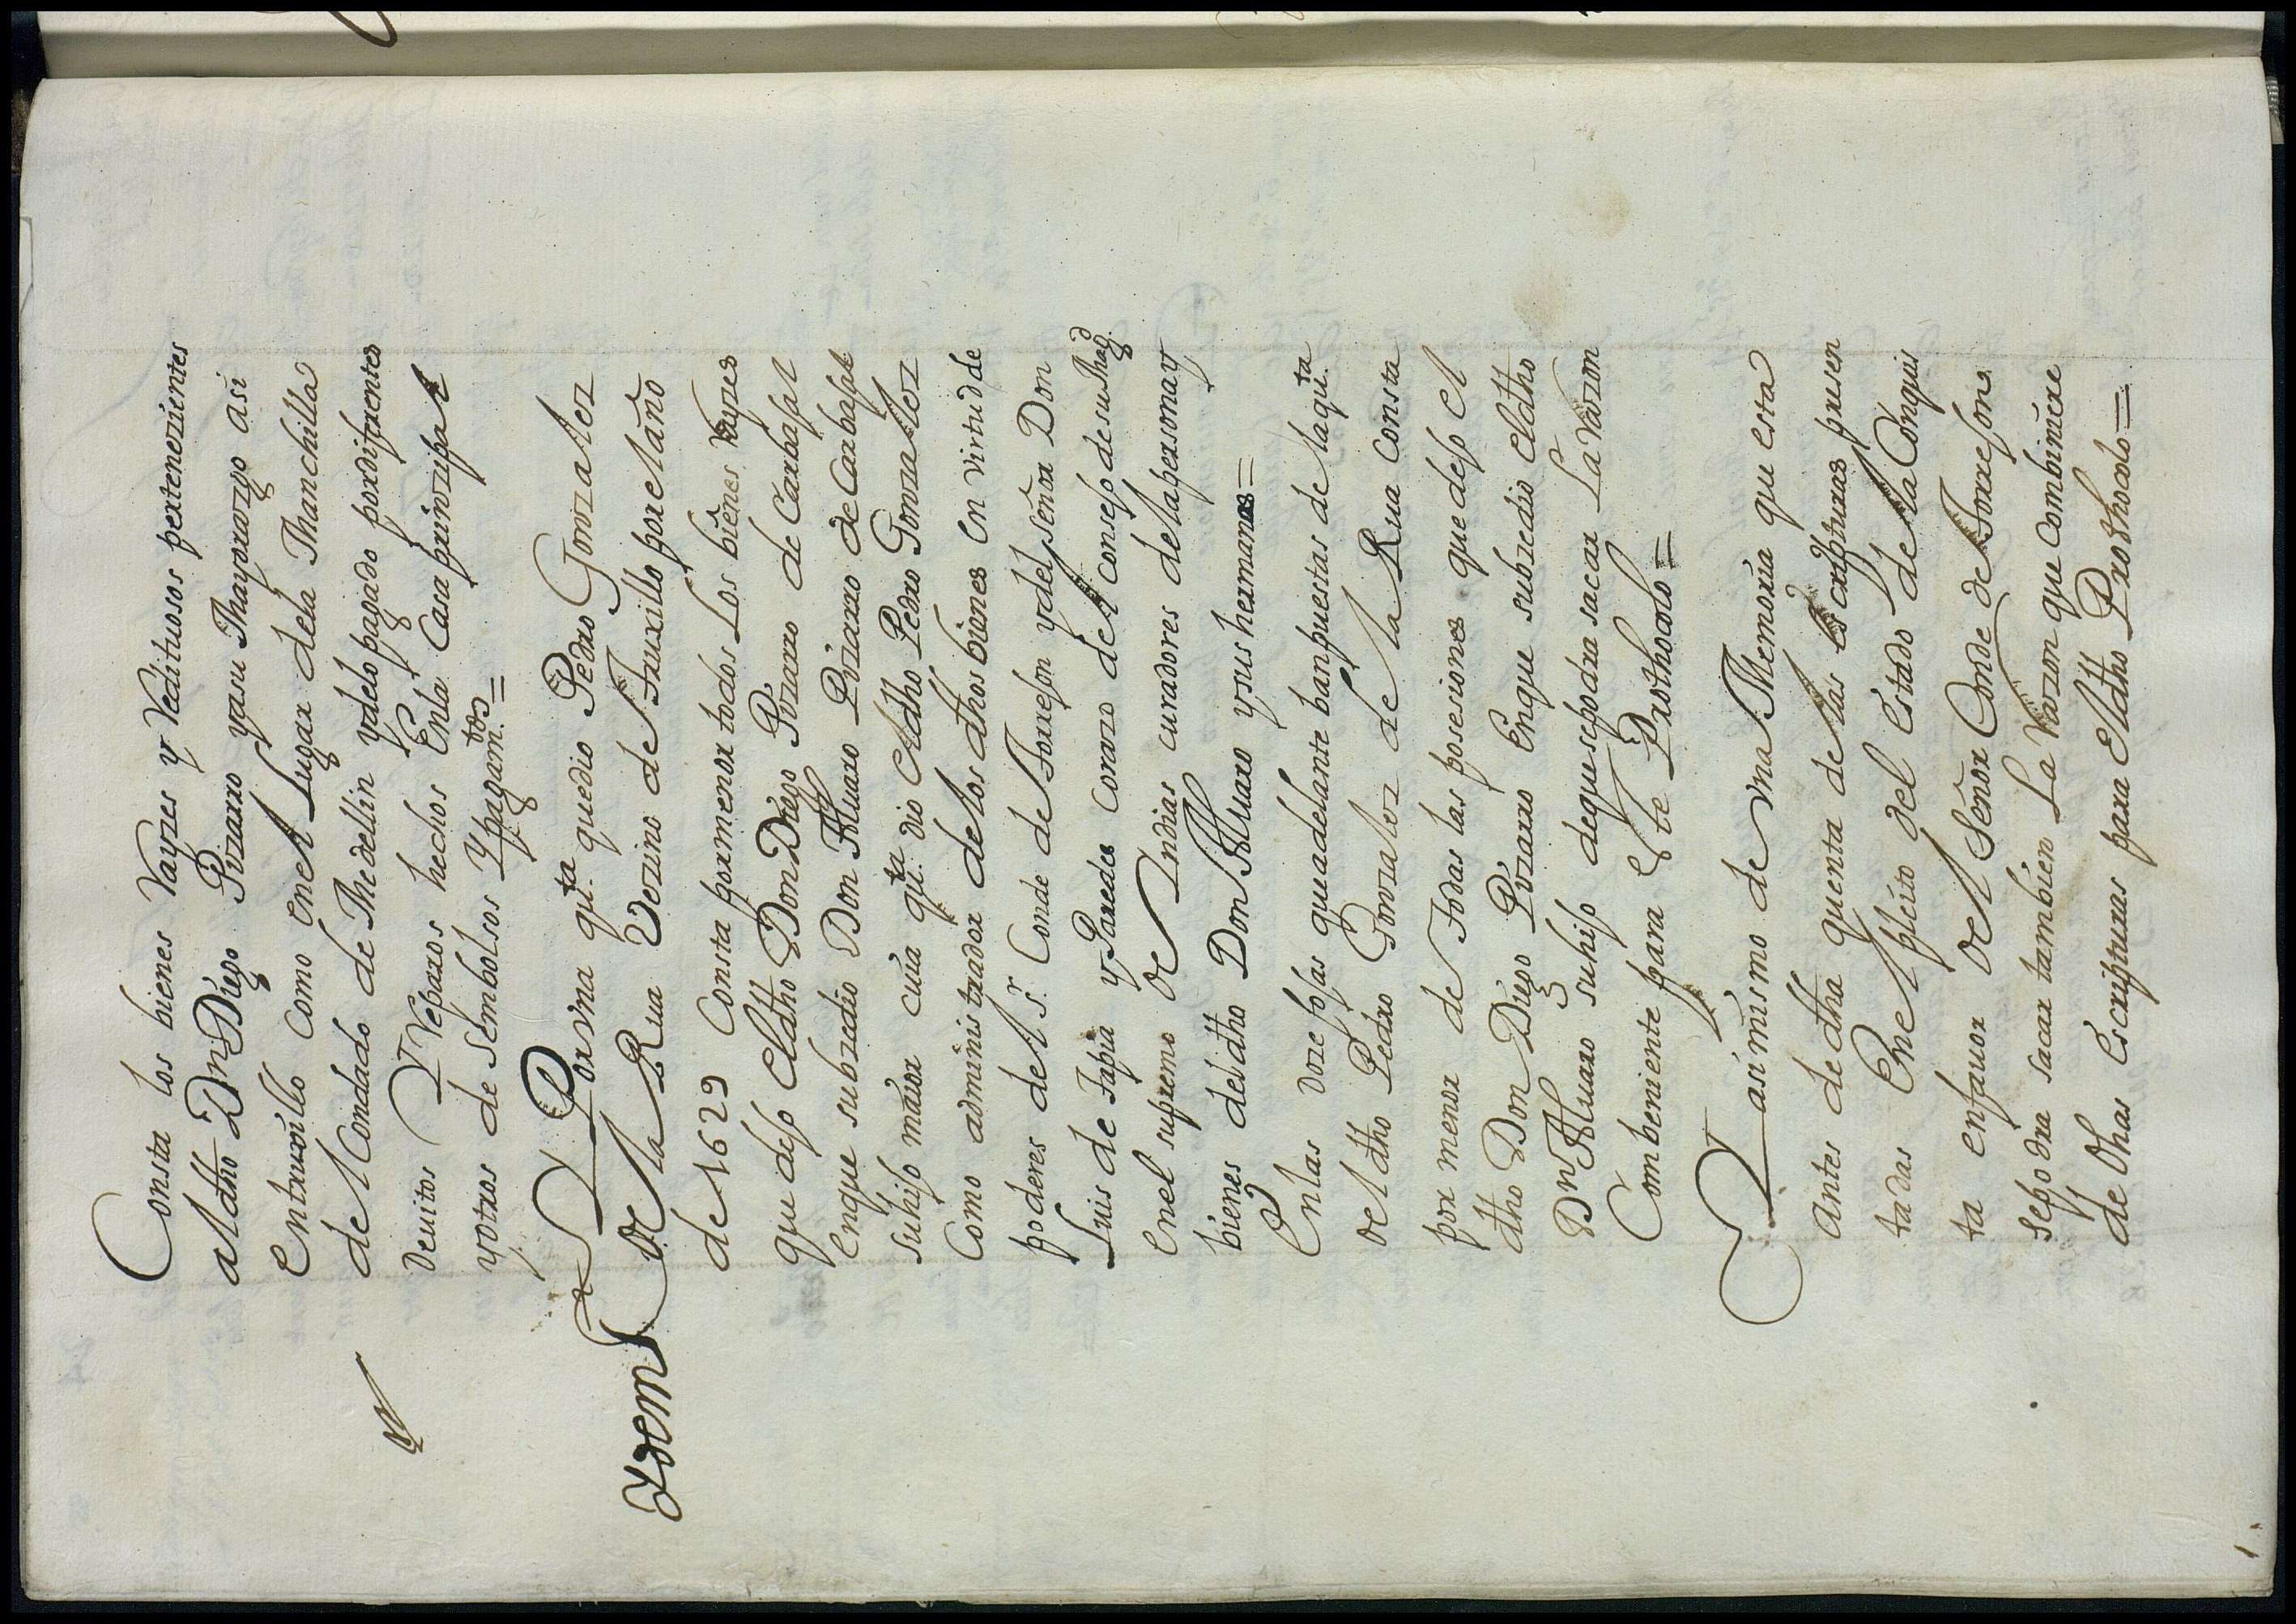 Consta los bienes Rayzes y Redituosos pertenezientes
al dho Dn Diego Pizarro y a su Mayorazgo asi
en truxillo como en el Lugar de la Manchilla
del Condado de Medellin y de lo pagado por diferentes
Deuitos Y Reparos hechos En la Casa prinzipal
y otros desembolsos Y pagam.tos =
Y Por vna qu.ta que dio Pedro Gonzalez
Ydem de la Rua Vezino de Truxillo por el año
de 1629 Consta por menor todos Los bienes Rayzes
que dejo el dho Don Diego Pizarro de Carbajal
en que subzedio Don Aluaro Pizarro de Carbajal
su hijo maior cuia qu.ta dio el dho Pedro Gonzalez
Como administrador de los dhos bienes en virtud de
poderes del s.r Conde de Torrejon y del señor Don
Luis de Tapia y Paredes Corazo del consejo de su Mag.d
en el supremo de Indias curadores de la persona y
bienes del dho Don Aluaro y sus hermanos =
En las doze fojas que adelante ban puestas de la qu.ta
del dho Pedro Gonzalez de la Rua Consta
por menor de Todas las posesiones que dejo el
dho Don Diego Pizarro En que subzedio el dho
Dn Aluaro su hijo de que se podra sacar La razon
Combeniente para Este Prothocolo =
Y asimismo de vna Memoria que esta
antes de dha quenta de las escripturas presen
tadas En el pleito del estado de la Conquis
ta en fauor del Señor Conde de Torrejon
se podra sacar tambien La Razon que Combiniere
de Dhas escripturas para el dho Prothocolo =